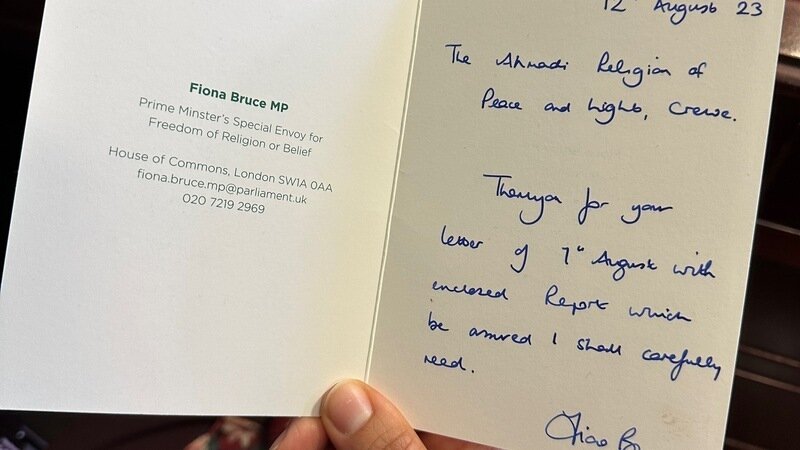 Fiona Bruce MP
Prime Minster's Special Envoy for
Freedom of Religion or Belief
House of Commons, London SW1A 0AA
fiona.bruce.mp@parliament.uk
020 7219 2969
12th August 23
The Ahmadi Religion of
Peace and Light, Crewe.
Thankyou for your
letter of 7th August with
enclosed Report which
be assured I shall carefully
read.
Fiona B